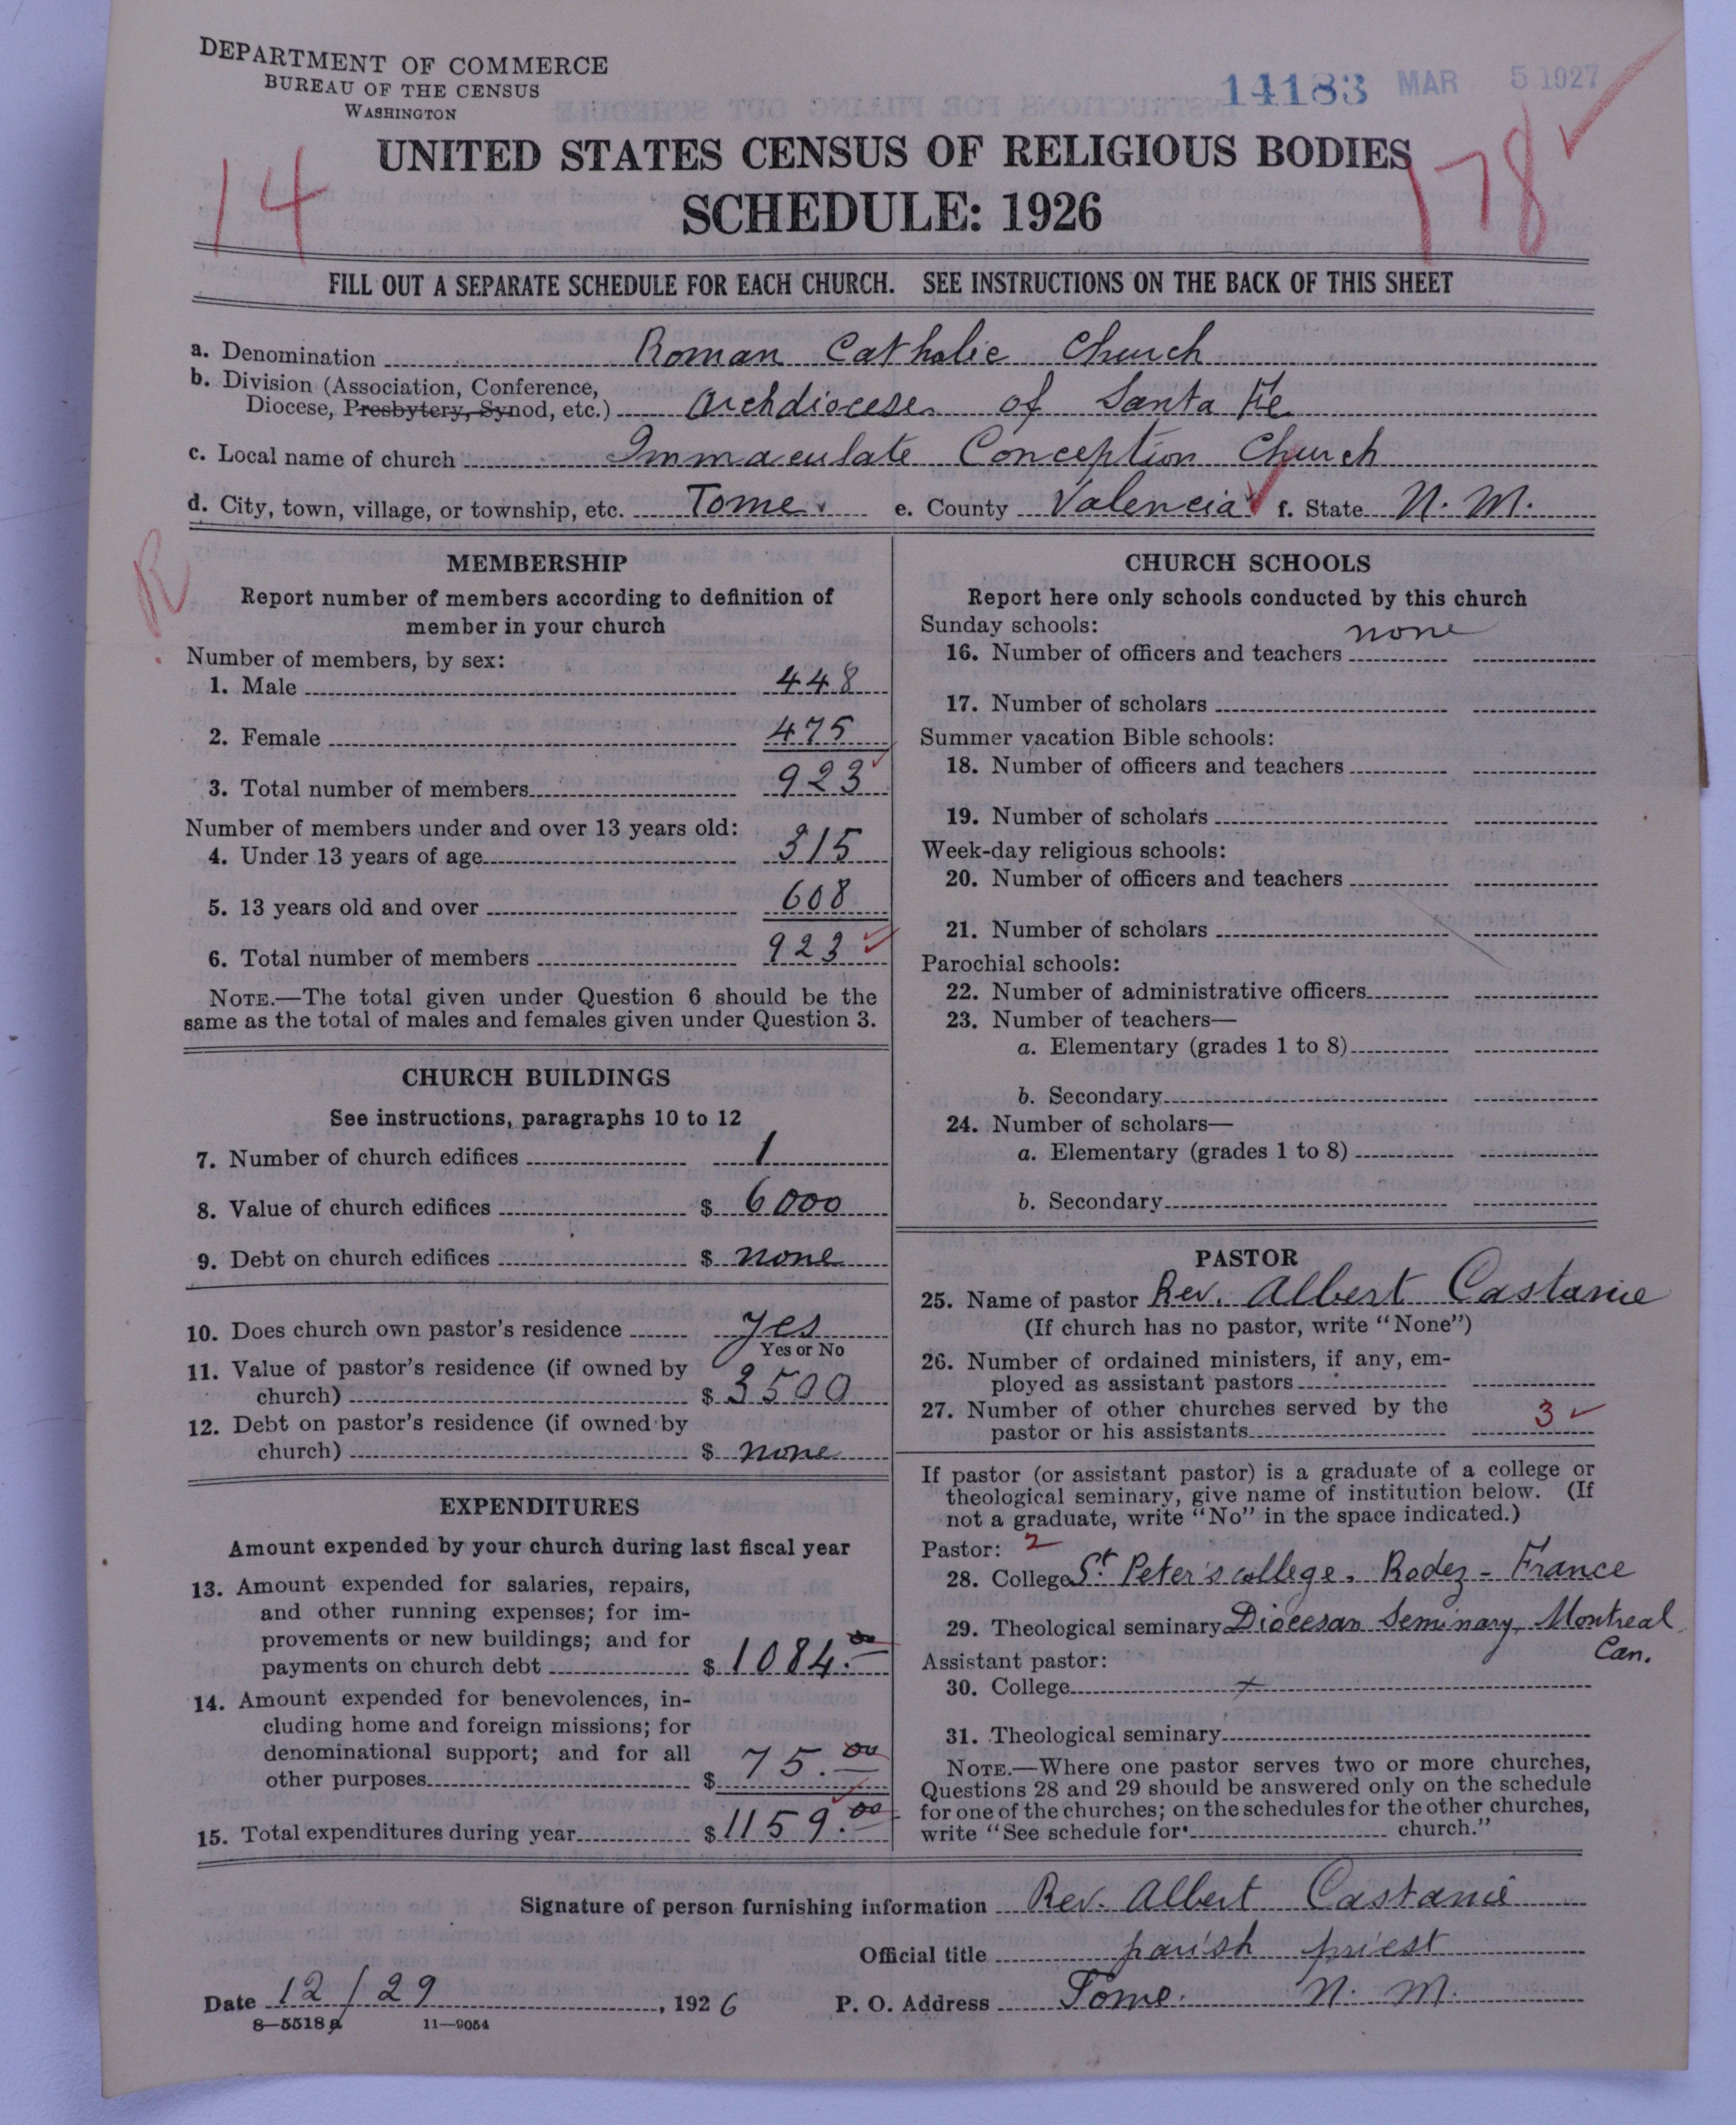 DEPARTMENT OF COMMERCE
BUREAU OF THE CENSUS
WASHINGTON
14183 MAR 5 1927
14
178
UNITED STATES CENSUS OF RELIGIOUS BODIES
SCHEDULE: 1926
FILL OUT A SEPARATE SCHEDULE FOR EACH CHURCH. SEE INSTRUCTIONS ON THE BACK OF THIS SHEET
a. Denomination Roman Catholic Church
b. Division (Association, Conference,
Diocese, Presbytery, Synod, etc.) Archdiocese of Santa Fe
c. Local name of church Immaculate Conception Church
d. City, town, village, or township, etc. Tome. e. County Valencia f. State N. M.
R
MEMBERSHIP
Report number of members according to definition of
member in your church
Number of members, by sex:
1. Male 448
2. Female 475
3. Total number of members 923
Number of members under and over 13 years old:
4. Under 13 years of age 315
5. 13 years old and over 608
6. Total number of members 923
NOTE.—The total given under Question 6 should be the
same as the total of males and females given under Question 3.
CHURCH BUILDINGS
See instructions, paragraphs 10 to 12
7. Number of church edifices 1
8. Value of church edifices $ 6000
9. Debt on church edifices $ none
10. Does church own pastor's residence yes
Yes or No
11. Value of pastor's residence (if owned by
church) $ 3500
12. Debt on pastor's residence (if owned by
church) $ none
EXPENDITURES
Amount expended by your church during last fiscal year
13. Amount expended for salaries, repairs,
and other running expenses; for im-
provements or new buildings; and for
payments on church debt $ 1084.00
14. Amount expended for benevolences, in-
cluding home and foreign missions; for
denominational support; and for all
other purposes $ 75.00
15. Total expenditures during year $ 1159.00
CHURCH SCHOOLS
Report here only schools conducted by this church
Sunday schools: none
16. Number of officers and teachers
17. Number of scholars
Summer vacation Bible schools:
18. Number of officers and teachers
19. Number of scholars
Week-day religious schools:
20. Number of officers and teachers
21. Number of scholars
Parochial schools:
22. Number of administrative officers
23. Number of teachers—
a. Elementary (grades 1 to 8)
b. Secondary
24. Number of scholars—
a. Elementary (grades 1 to 8)
b. Secondary
PASTOR
25. Name of pastor Rev. Albert Castanie
(If church has no pastor, write "None")
26. Number of ordained ministers, if any, em-
ployed as assistant pastors
27. Number of other churches served by the
pastor or his assistants 3
If pastor (or assistant pastor) is a graduate of a college or
theological seminary, give name of institution below. (If
not a graduate, write "No" in the space indicated.)
Pastor: 2
28. College St Peter's college. Rodez - France
29. Theological seminary Diocesan Seminary, Montreal
Can.
Assistant pastor:
30. College x
31. Theological seminary
NOTE.—Where one pastor serves two or more churches,
Questions 28 and 29 should be answered only on the schedule
for one of the churches; on the schedules for the other churches,
write "See schedule for church."
Signature of person furnishing information Rev. Albert Castanié
Official title parish priest
Date 12/29, 1926 P. O. Address Tome. N. M.
8—5518 a 11—9054